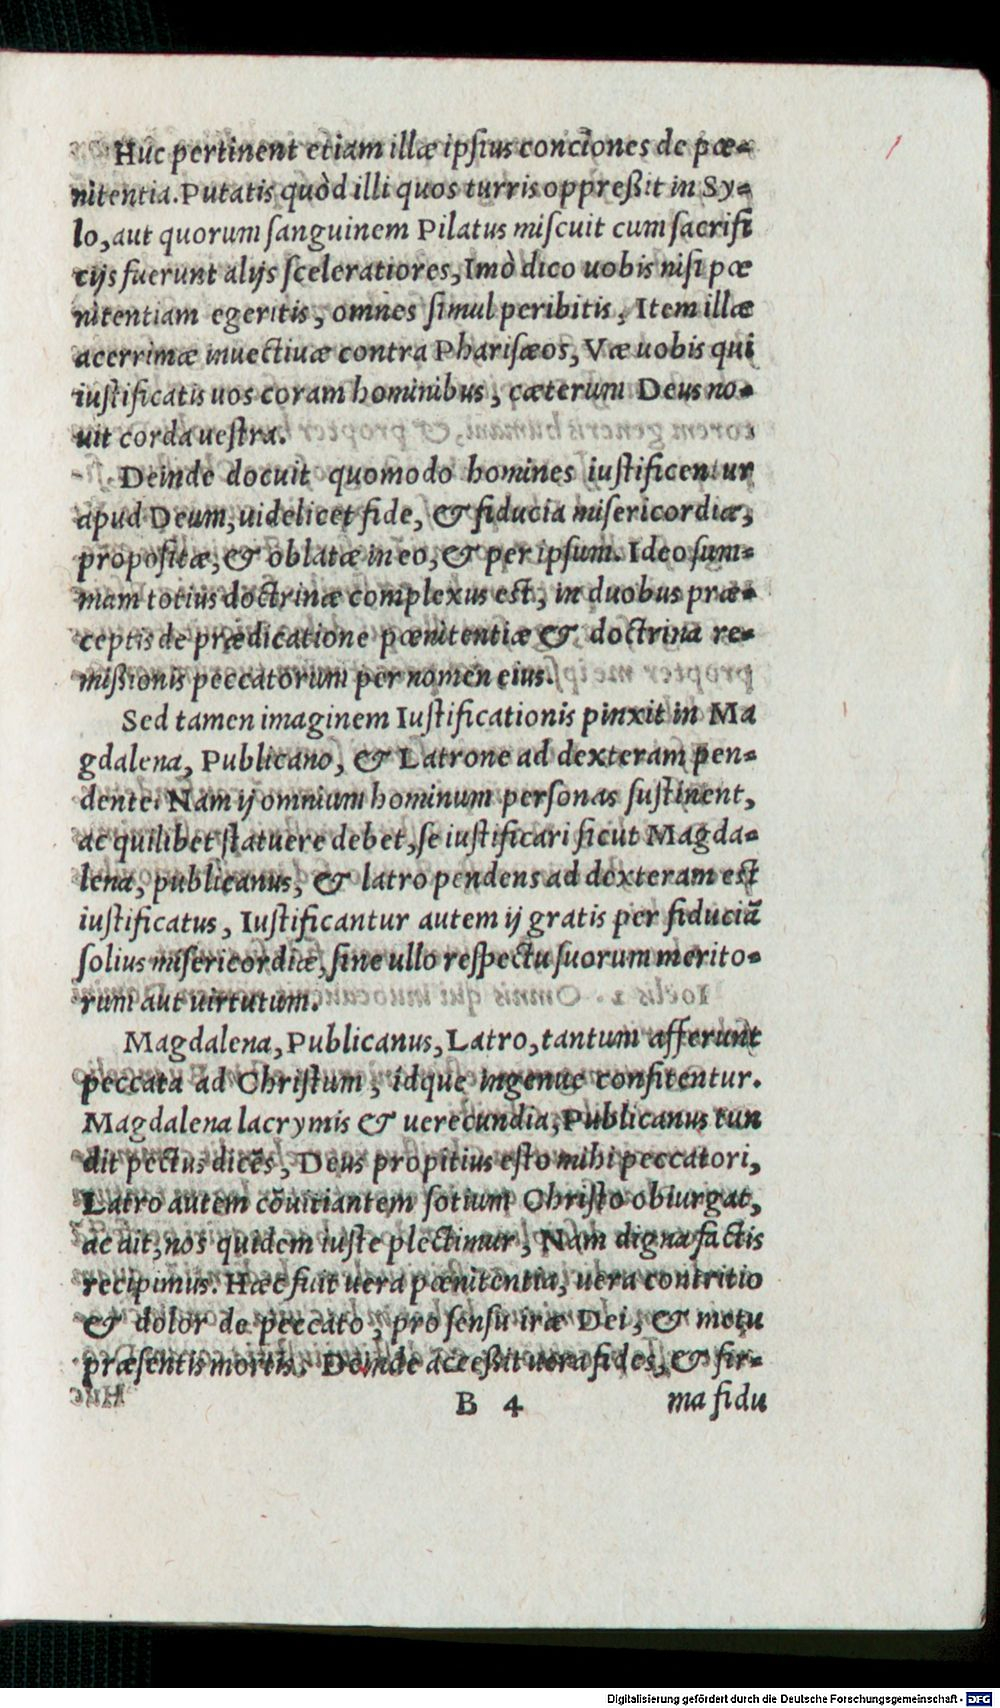 Huc pertinent etiam illæ ipsius conciones de pœ-
nitentia. Putatis quòd illi quos turris oppreßit in Sy-
lo, aut quorum sanguinem Pilatus miscuit cum sacrifi
cijs fuerunt alijs sceleratiores, Imò dico uobis nisi pœ
nitentiam egeritis, omnes simul peribitis, Item illæ
acerrimæ inuectiuæ contra Pharisæos, Væ uobis qui
iustificatis uos coram hominibus, cæterum Deus no-
uit corda uestra.
Deinde docuit quomodo homines iustificentur
apud Deum, uidelicet fide, & fiducia misericordiæ,
propositæ, & oblatæ in eo, & per ipsum. Ideo sum-
mam totius doctrinæ complexus est, in duobus præ-
ceptis de prædicatione pœnitentiæ & doctrina re-
mißionis peccatorum per nomen eius.
Sed tamen imaginem Iustificationis pinxit in Ma
gdalena, Publicano, & Latrone ad dexteram pen-
dente. Nam ij omnium hominum personas sustinent,
ac quilibet statuere debet, se iustificari sicut Magda-
lena, publicanus, & latro pendens ad dexteram est
iustificatus, Iustificantur autem ij gratis per fiduciã
solius misericordiæ, sine ullo respectu suorum merito-
rum aut uirtutum.
Magdalena, Publicanus, Latro, tantum afferunt
peccata ad Christum, idque ingenue confitentur.
Magdalena lacrymis & uerecundia, Publicanus tun
dit pectus dicẽs, Deus propitius esto mihi peccatori,
Latro autem cõuitiantem sotium Christo obiurgat,
ac ait, nos quidem iuste plectimur, Nam digna factis
recipimus. Hæc fuit uera pœnitentia, uera contritio
& dolor de peccato, pro sensu iræ Dei, & metu
præsentis mortis. Deinde acceßit uera fides, & fir-
B 4 ma fidu
Digitalisierung gefördert durch die Deutsche Forschungsgemeinschaft - DFG